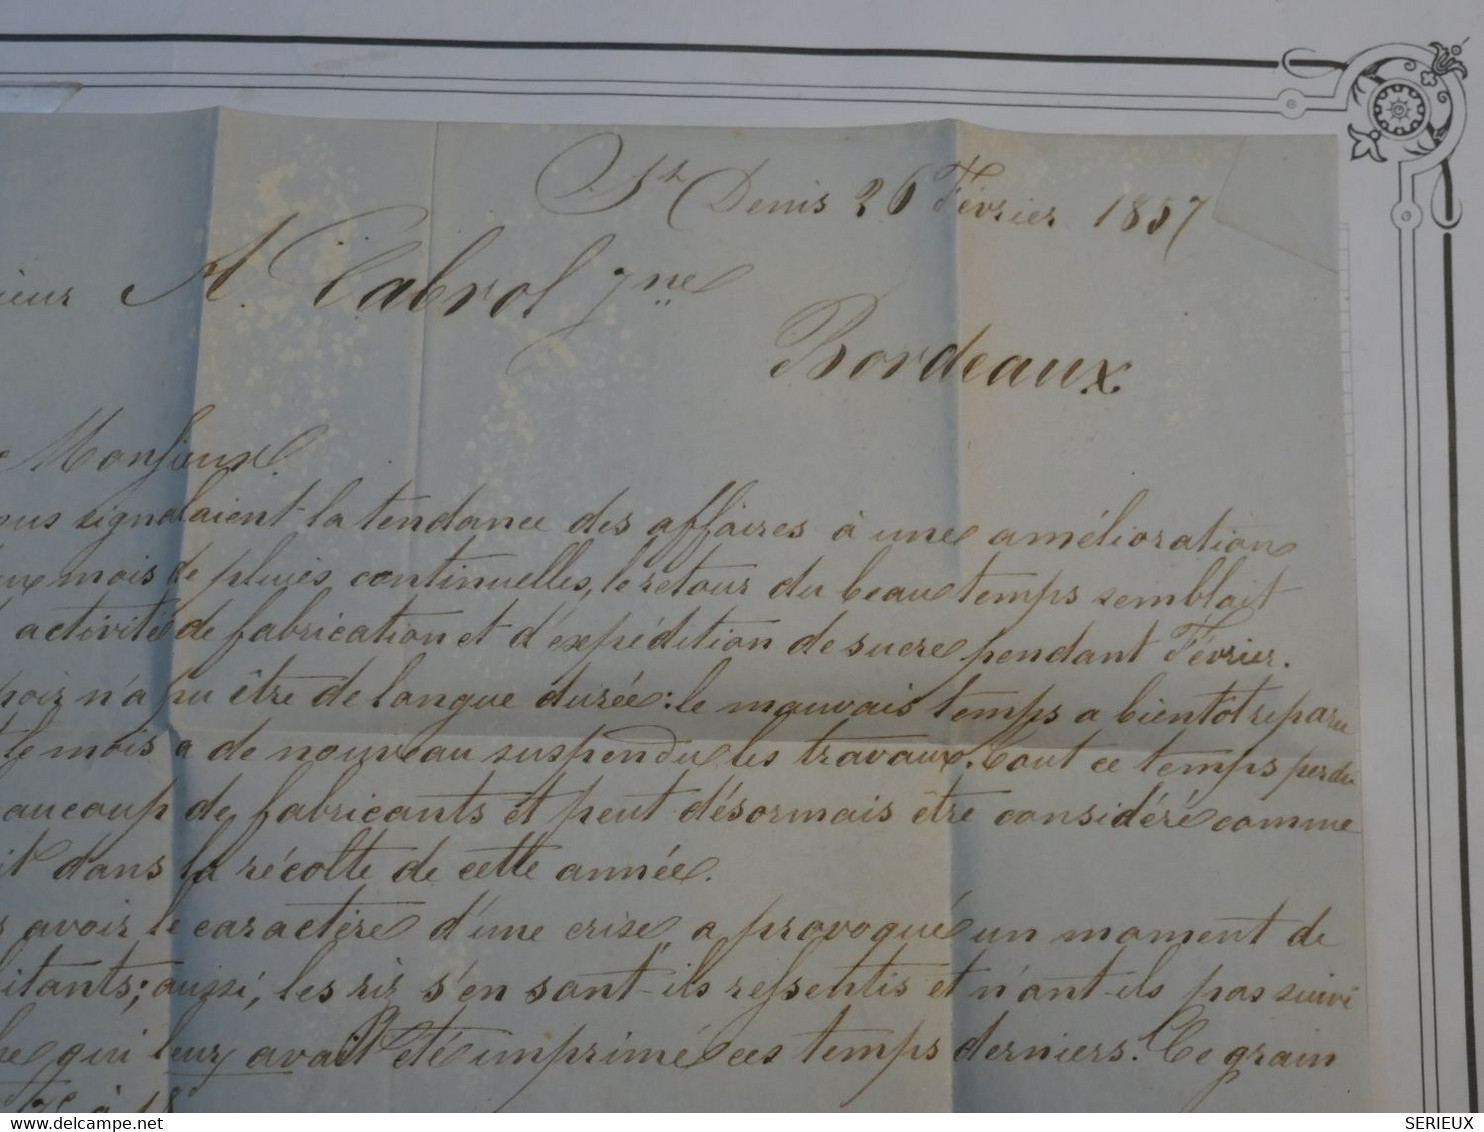 St Denis 26 Février 1857
ieur A. Cabrol Jne
Bordeaux
Monsieur
ous signalaient la tendance des affaires à une amélioration
mois de pluies continuelles, le retour du beau temps semblait
activité de fabrication et d'expédition de sucre pendant Février.
poir n'a pu être de longue durée: le mauvais temps a bientôt reparu
le mois a de nouveau suspendu les travaux. Tout ce temps perdu
aucoup de fabricants et peut désormais être considéré comme
it dans la récolte de cette année.
avoir le caractère d'une crise, a provoqué un moment de
itants; aussi, les riz s'en sont-ils ressentis et n'ont-ils pas suivi
qui leur avait été imprimé ces temps derniers. Ce grain
à
SERIEUX